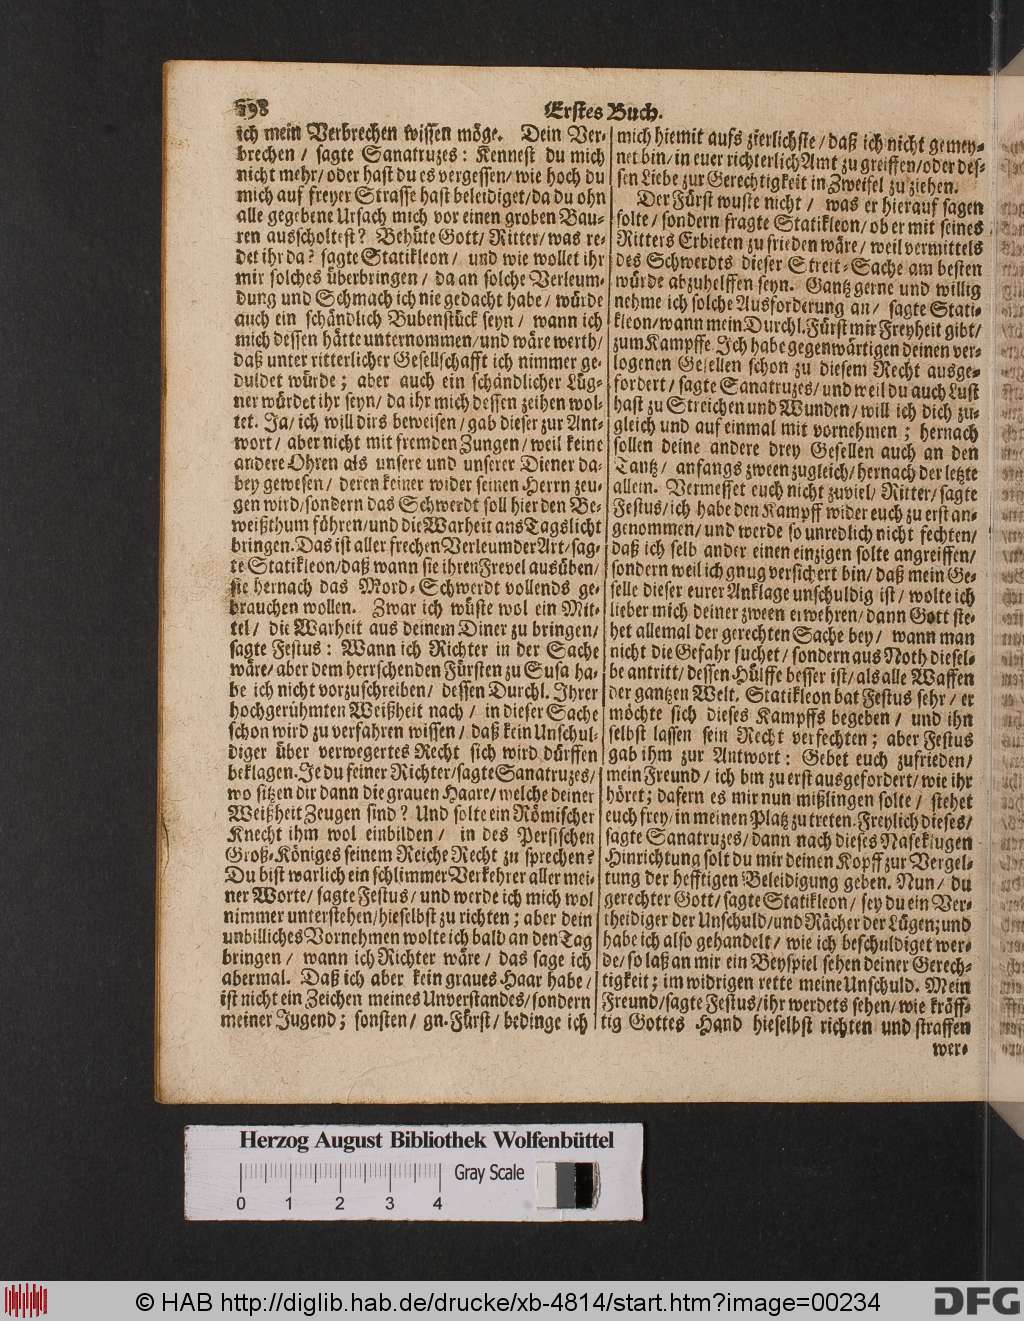 198
Erstes Buch.
ich mein Verbrechen wissen möge. Dein Ver-
brechen / sagte Sanatruzes: Kennest du mich
nicht mehr/ oder hast du es vergessen/ wie hoch du
mich auf freyer Strasse hast beleidiget/ da du ohn
alle gegebene Ursach mich vor einen groben Bau-
ren ausscholtest? Behüte Gott/ Ritter/ was re-
det ihr da? sagte Statikleon/ und wie wollet ihr
mir solches überbringen / da an solche Verleum-
dung und Schmach ich nie gedacht habe/ würde
auch ein schändlich Bubenstück seyn / wann ich
mich dessen hätte unternommen/ und wäre werth/
daß unter ritterlicher Gesellschafft ich nimmer ge-
duldet würde; aber auch ein schändlicher Lüg-
ner würdet ihr seyn/ da ihr mich dessen zeihen wol-
tet. Ja/ ich will dirs beweisen/ gab dieser zur Ant-
wort/ aber nicht mit fremden Zungen/ weil keine
andere Ohren als unsere und unserer Diener da-
bey gewesen/ deren keiner wider seinen Herrn zeu-
gen wird/ sondern das Schwerdt soll hier den Be-
weißthum führen/ und die Warheit ans Tagslicht
bringen. Das ist aller frechen Verleumder Art/ sag-
te Statikleon/ daß wann sie ihren Frevel ausüben/
sie hernach das Mord-Schwerdt vollends ge-
brauchen wollen. Zwar ich wüste wol ein Mit-
tel/ die Warheit aus deinem Diner zu bringen/
sagte Festus: Wann ich Richter in der Sache
wäre/ aber dem herrschenden Fürsten zu Susa ha-
be ich nicht vorzuschreiben/ dessen Durchl. Ihrer
hochgerühmten Weißheit nach/ in dieser Sache
schon wird zu verfahren wissen/ daß kein Unschul-
diger über verwegertes Recht sich wird dürffen
beklagen. Je du feiner Richter/ sagte Sanatruzes/
wo sitzen dir dann die grauen Haare/ welche deiner
Weißheit Zeugen sind? Und solte ein Römischer
Knecht ihm wol einbilden / in des Persischen
Groß-Königes seinem Reiche Recht zu sprechen?
Du bist warlich ein schlimmer Verkehrer aller mei-
ner Worte/ sagte Festus/ und werde ich mich wol
nimmer unterstehen/ hieselbst zu richten; aber dein
unbilliches Vornehmen wolte ich bald an den Tag
bringen/ wann ich Richter wäre/ das sage ich
abermal. Daß ich aber kein graues Haar habe/
ist nicht ein Zeichen meines Unverstandes/ sondern
meiner Jugend; sonsten/ gn. Fürst/ bedinge ich
mich hiemit aufs zierlichste/ daß ich nicht gemey-
net bin/ in euer richterlich Amt zu greiffen/ oder des-
sen Liebe zur Gerechtigkeit in Zweifel zu ziehen.
Der Fürst wuste nicht / was er hierauf sagen
solte/ sondern fragte Statikleon/ ob er mit seines
Ritters Erbieten zu frieden wäre/ weil vermittels
des Schwerdts dieser Streit-Sache am besten
würde abzuhelffen seyn. Gantz gerne und willig
nehme ich solche Ausforderung an/ sagte Stati-
kleon/ wann mein Durchl. Fürst mir Freyheit gibt/
zum Kampffe. Ich habe gegenwärtigen deinen ver-
logenen Gesellen schon zu diesem Recht ausge-
fordert/ sagte Sanatruzes/ und weil du auch Lust
hast zu Streichen und Wunden/ will ich dich zu-
gleich und auf einmal mit vornehmen; hernach
sollen deine andere drey Gesellen auch an den
Tantz/ anfangs zween zugleich/ hernach der letzte
allein. Vermesset euch nicht zuviel/ Ritter/ sagte
Festus/ ich habe den Kampff wider euch zu erst an-
genommen/ und werde so unredlich nicht fechten/
daß ich selb ander einen einzigen solte angreiffen/
sondern weil ich gnug versichert bin/ daß mein Ge-
selle dieser eurer Anklage unschuldig ist/ wolte ich
lieber mich deiner zween erwehren/ dann Gott ste-
het allemal der gerechten Sache bey/ wann man
nicht die Gefahr suchet/ sondern aus Noth diesel-
be antritt/ dessen Hülffe besser ist/ als alle Waffen
der gantzen Welt. Statikleon bat Festus sehr/ er
möchte sich dieses Kampffs begeben / und ihn
selbst lassen sein Recht verfechten; aber Festus
gab ihm zur Antwort: Gebet euch zufrieden/
mein Freund/ ich bin zu erst ausgefordert/ wie ihr
höret; dafern es mir nun mißlingen solte/ stehet
euch frey/ in meinen Platz zu treten. Freylich dieses/
sagte Sanatruzes/ dann nach dieses Naseklugen
Hinrichtung solt du mir deinen Kopff zur Vergel-
tung der hefftigen Beleidigung geben. Nun/ du
gerechter Gott/ sagte Statikleon/ sey du ein Ver-
theidiger der Unschuld/ und Rächer der Lügen; und
habe ich also gehandelt/ wie ich beschuldiget wer-
de/ so laß an mir ein Beyspiel sehen deiner Gerech-
tigkeit; im widrigen rette meine Unschuld. Mein
Freund/ sagte Festus/ ihr werdets sehen/ wie kräff-
tig Gottes Hand hieselbst richten und straffen
wer-
Herzog August Bibliothek Wolfenbüttel
Gray Scale
0 1 2 3 4
© HAB http://diglib.hab.de/drucke/xb-4814/start.htm?image=00234
DFG